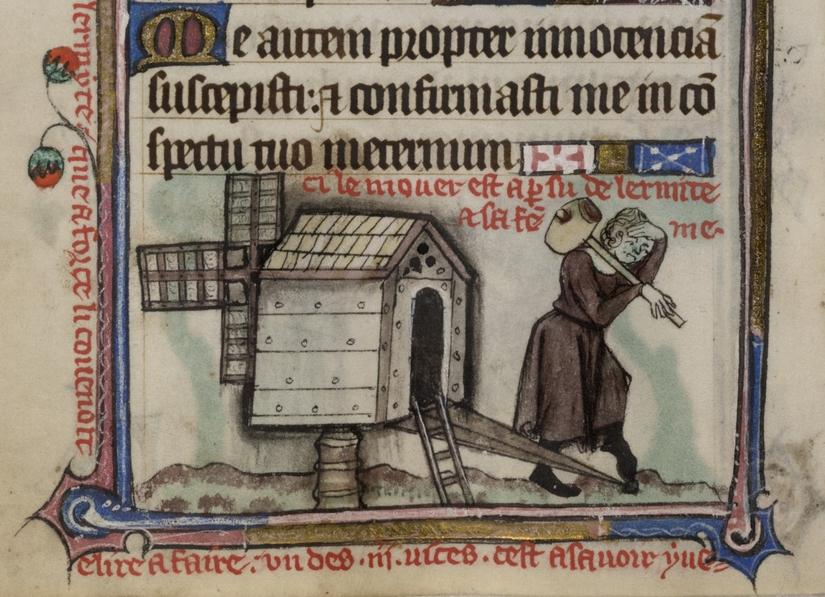 Me autem propter innocenciā
suscepisti: et confirmasti me in cō
spectu tuo ineternum
ci le mouer est apͬsu de lermite
a sa fē me
lermite que a force li couenoit
elire a faire. vn des .iij. uices. cest asauoir yue